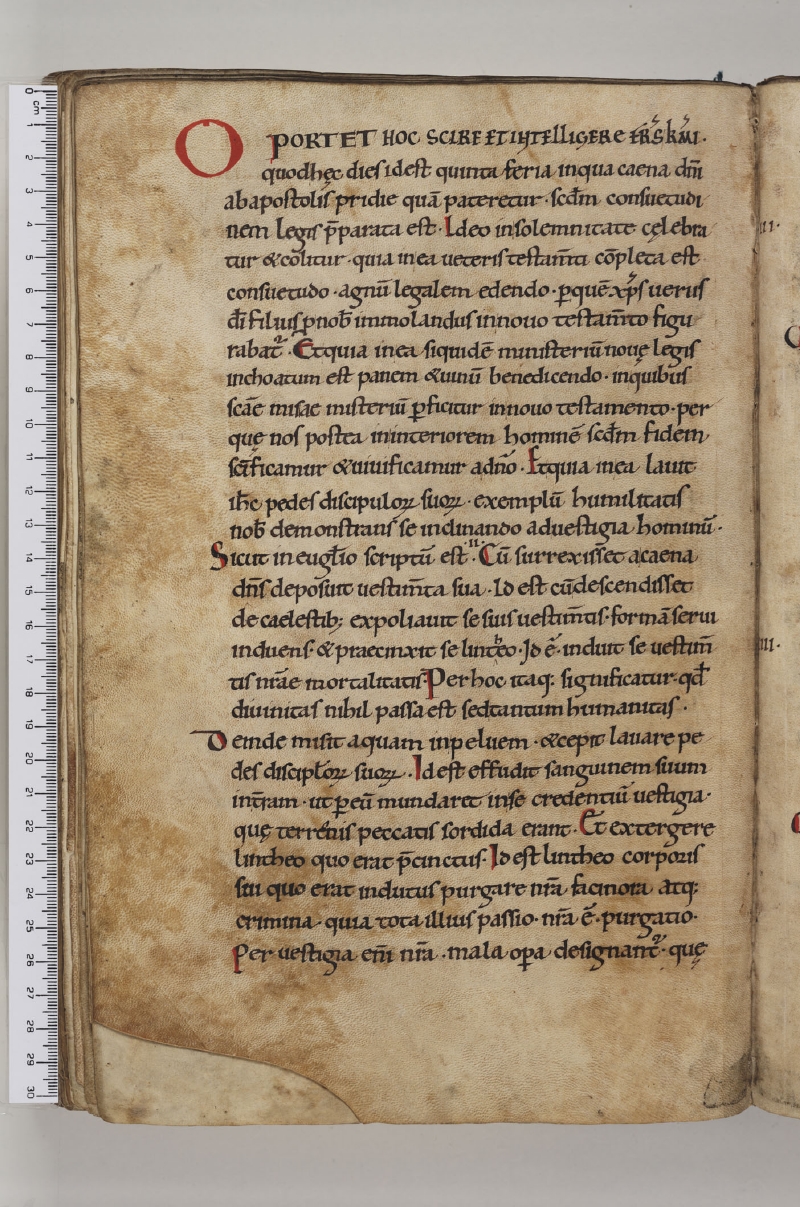 OPORTET HOC SCIRE ET INTELLIGERE FRS KMI.
quod hęc dies id est quinta feria in qua caena dn̄i
ab apostolis pridie quā pateretur · scdm̄ consuetudi
nem legis p̄parata est · Ideo in solemnitate celebra
tur & cōlitur · quia in ea ueteris testam̄ti cōpleta est
consuetudo · agnū legalem edendo · ꝑ quē xp̄s uerus
dī filius ꝓ nob̄ immolandus in nouo testam̄to figu
rabat᷑ · Et quia in ea siquidē ministeriū nouę legis
inchoatum est panem & uinū benedicendo · in quibus
scāe misae misteriū ꝑficitur in nouo testamento · per
quę nos postea in interiorem hominē scdm̄ fidem
sc̄ificamur & uiuificamur a dn̄o · Et quia in ea lauit
ih̄c pedes discipuloꝝ suoꝝ · exemplū humilitatis
nob̄ demonstrans se inclinando ad uestigia hominū ·
Sicut in eugl̄io scriptū est · Cū surrexisset a caena
dn̄s deposuit uestim̄ta sua · Id est cū descendisset
de caelestib; expoliauit se suis uestim̄tis · formā serui
induens · & praecinxit se linteo · Id ē · induit se uestim̄
tis nr̄ae mortalitatis · Per hoc itaq: significatur · qd̄
diuinitas nihil passa est sed tantum humanitas ·
Deinde misit aquam in peluem · & cepit lauare pe
des discipl̄oꝝ suoꝝ · Id est effudit sanguinem suum
in t̄ram · ut ꝑ eū mundaret in se credentiū uestigia ·
quę terrenis peccatis sordida erant · Et extergere
lintheo quo erat p̄cinctus · Id est lintheo corporis
sui quo erat indutus purgare nr̄a facinora atq:
crimina · quia tota illius passio · nr̄a ē · purgatio ·
Per uestigia eni̅ nr̄a · mala oꝑa designant᷑ · quę
II·
III·